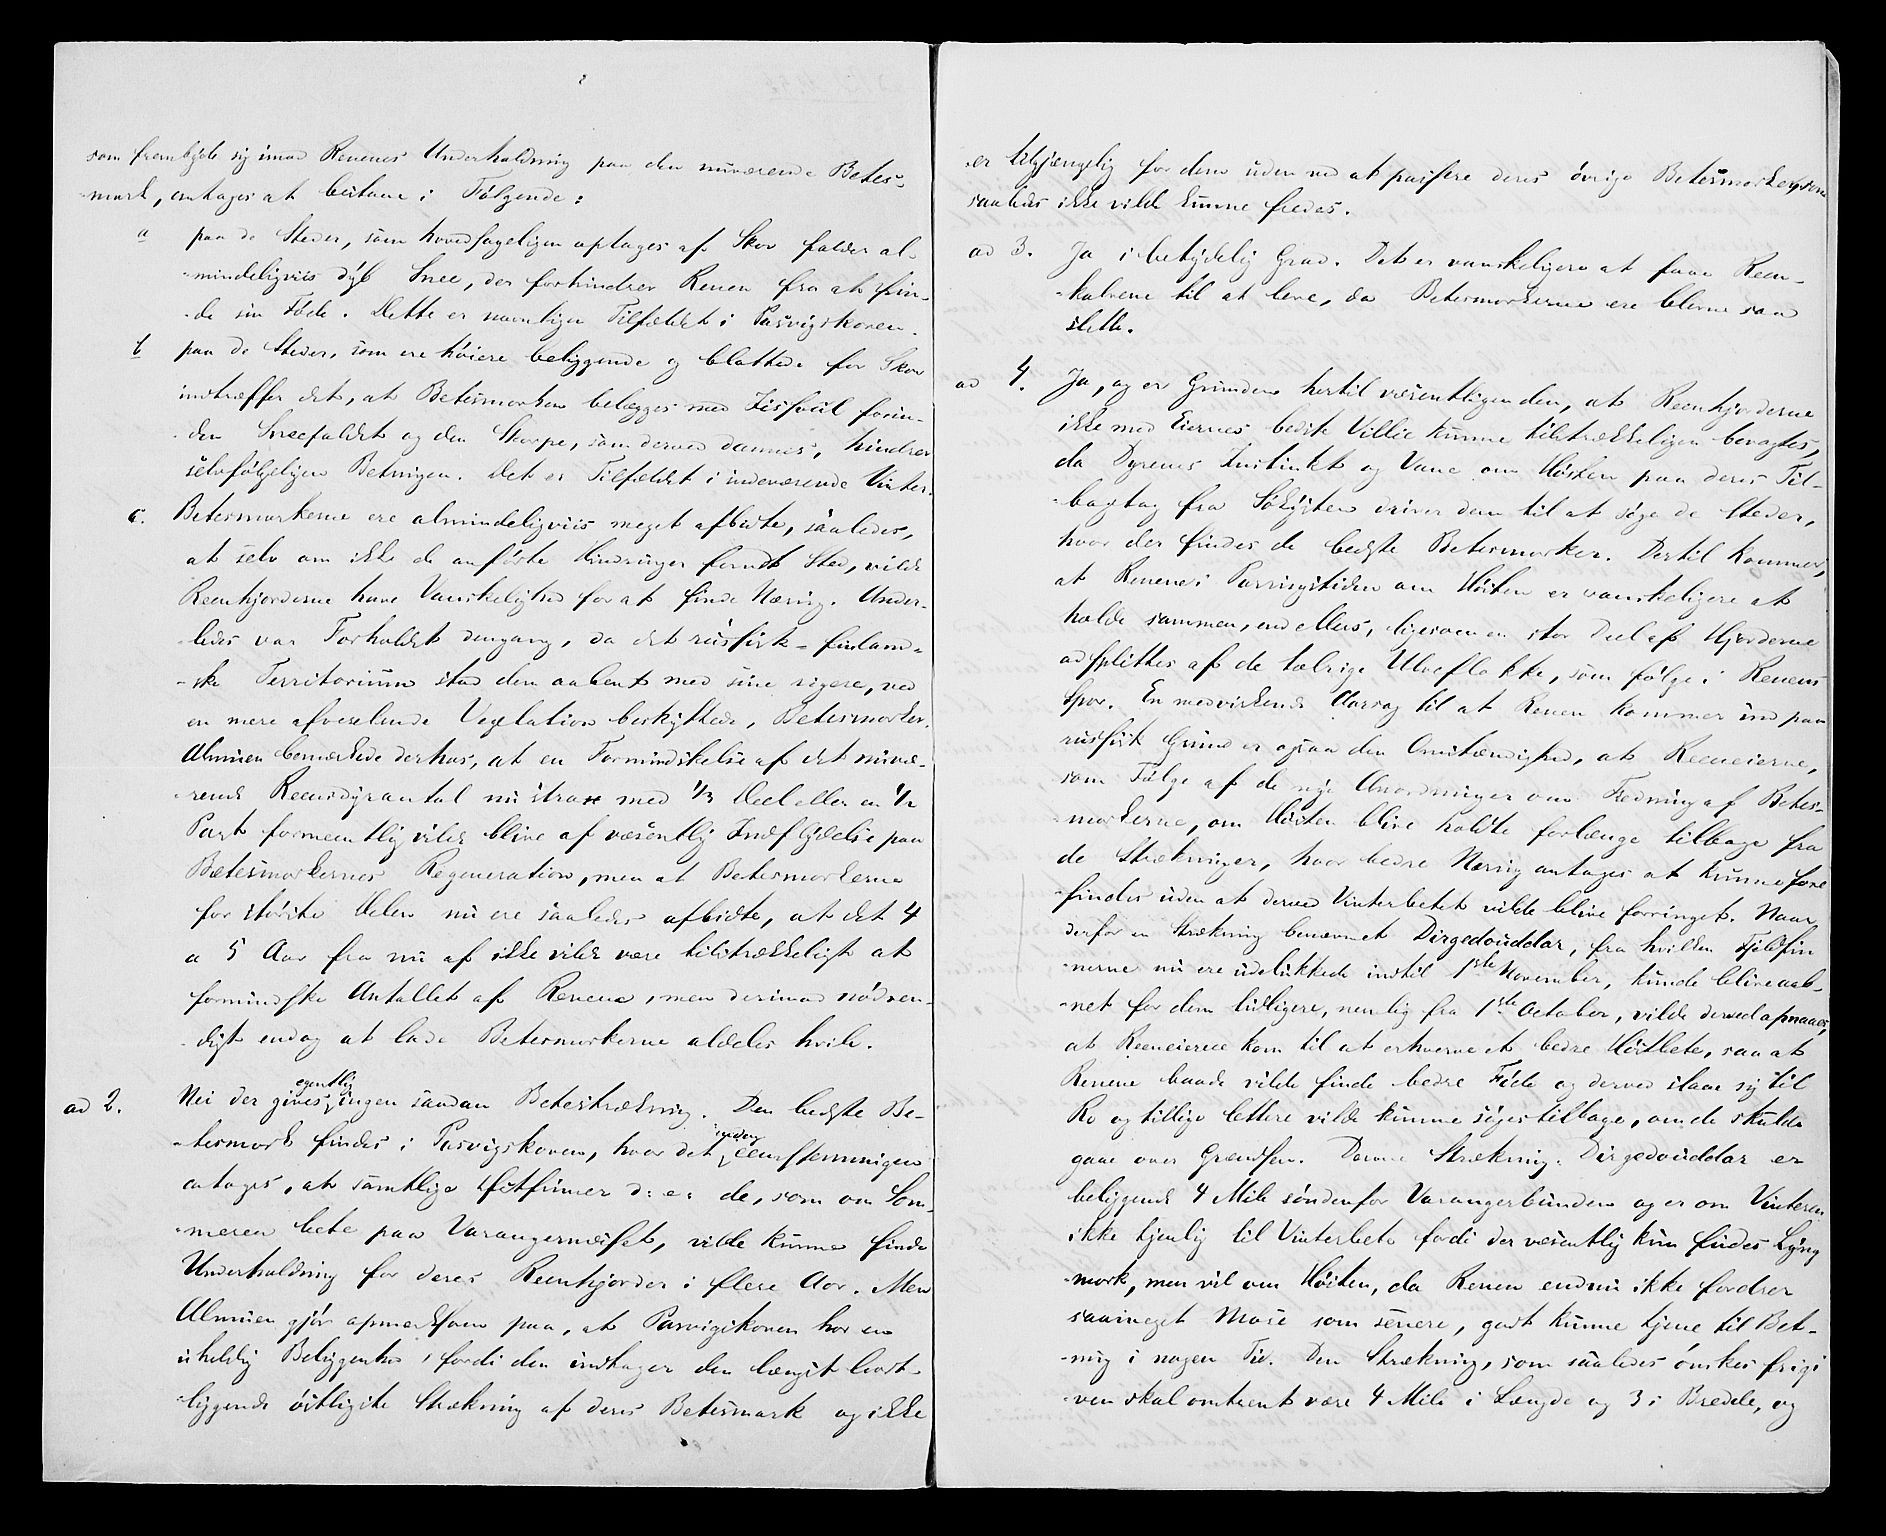 som frembyde sig imod Renenes Underholdning paa den nuværende Betes-
mark, antages at bestaae i Følgende:
a paa de Steder, som hovedsageligen optages af Skov falder al-
mindeligviis dyb Snee, der forhindrer Renen fra at fin-
de sin Føde. Dette er navnligen Tilfældet i Pasvigskoven.
b paa de Steder, som ere høiere beliggende og blottede for Skov
indtræffer det, at Betesmarken belægges med Iisspåil forin-
den Sneefaldet og den Skorpe, som derved dannes, hindrer
selvfølgeligen Betningen. Det er Tilfældet i indeværende Vinter.
c. Betesmarkerne ere almindeligviis meget afbidte, saaledes,
at selv om ikke de anførte Hindringer fandt Sted, vilde
Reenhjorderne have Vanskelighed for at finde Næring. Ander-
ledes var Forholdet dengang, da det russisk-finland-
ske Territorium stod dem aabent med sine rigere, ved
en mere afvexlende Vegetation beskyttede, Betesmarker.
Almuen bemærkede derhos, at en Formindskelse af det nuvæ-
rende Reensdyrantal nu strax med 1/3 Deel eller en 1/2
Part formeentlig vilde blive af væsentlig Indflydelse paa
Betesmarkernes Regeneration, men at Betesmarkerne
for største Delen nu ere saaledes afbidte, at det 4
a 5 Aar fra nu af ikke vilde være tilstrækkeligt at
formindske Antallet af Renene, men derimod nødven-
digt endog at lade Betesmarkerne aldeles hvile.
ad 2. Nei der gives egentlig ingen saadan Betestrækning. Den bedste Be-
tesmark findes i Pasvigskoven, hvor det endog eenstemmigen
antages, at samtlige Østfinner d: e: de, som om Som-
meren bete paa Varangernæsset, vilde kunne finde
Underholdning for deres Reenhjorder i flere Aar. Men
Almuen gjør opmærksom paa, at Pasvigskoven har en
uheldig Beliggenhed, fordi den indtager den længst bort-
liggende østligste Strækning af deres Betesmark og ikke
er tilgjængelig for dem uden ved at passere deres øvrige Betesmarker, som
saaledes ikke vilde kunne fredes.
ad 3. Ja i betydelig Grad. Det er vanskeligere at faae Reen-
kalvene til at leve, da Betesmarkerne ere blevne saa
slette.
ad 4. Ja, og er Grunden hertil væsentligen den, at Reenhjorderne
ikke med Eiernes bedste Villie kunne tilstrækkeligen bevogtes,
da Dyrenes Instinkt og Vane om Høsten paa deres Til-
bagtog fra Søkysten driver dem til at søge de Steder,
hvor der findes de bedste Betesmarker. Dertil kommer,
at Renenes Parringstiden om Høsten er vanskeligere at
holde sammen, end ellers, ligesom en stor Deel af Hjorderne
adsplittes af de talrige Ulveflokke, som følge i Renens
Spor. En medvirkende Aarsag til at Renen kommer ind paa
russisk Grund er ogsaa den Omstændighed, at Reeneierne,
som Følge af de nye Anordninger om Fredning af Betes-
markerne, om Høsten blive holdte forlænge tilbage fra
de Strækninger, hvor bedre Næring antages at kunne fore
findes uden at derved Vinterbetet vilde blive forringet. Naar
derfor en Strækning benævnet Dirgedouddar, fra hvilken Fjeldfin
nerne nu ere udelukkede indtil 1ste November, kunde blive aab-
net for dem tidligere, nemlig fra 1ste October, vilde derved opnaaes,
at Reeneierne kom til at erhverve et bedre Høstbete, saa at
Renene baade vilde finde bedre Føde og derved slaae sig til
Ro og tillige lettere vilde kunne søges tilbage, om de skulde
gaae over Grændsen. Denne Strækning: Dirgedouddar er
beliggende 4 Mile søndenfor Varangerbunden og er om Vinteren
ikke tjenlig til Vinterbete fordi der væsentlig kun findes Lyng
mark, men vil om Høsten, da Renen endnu ikke fordrer
saameget Mose som senere, godt kunne tjene til Bet-
ning i nogen Tid. Den Strækning, som saaledes ønskes frigi
ven skal omtrent være 4 Mile i Længde og 3 i Bredde, og